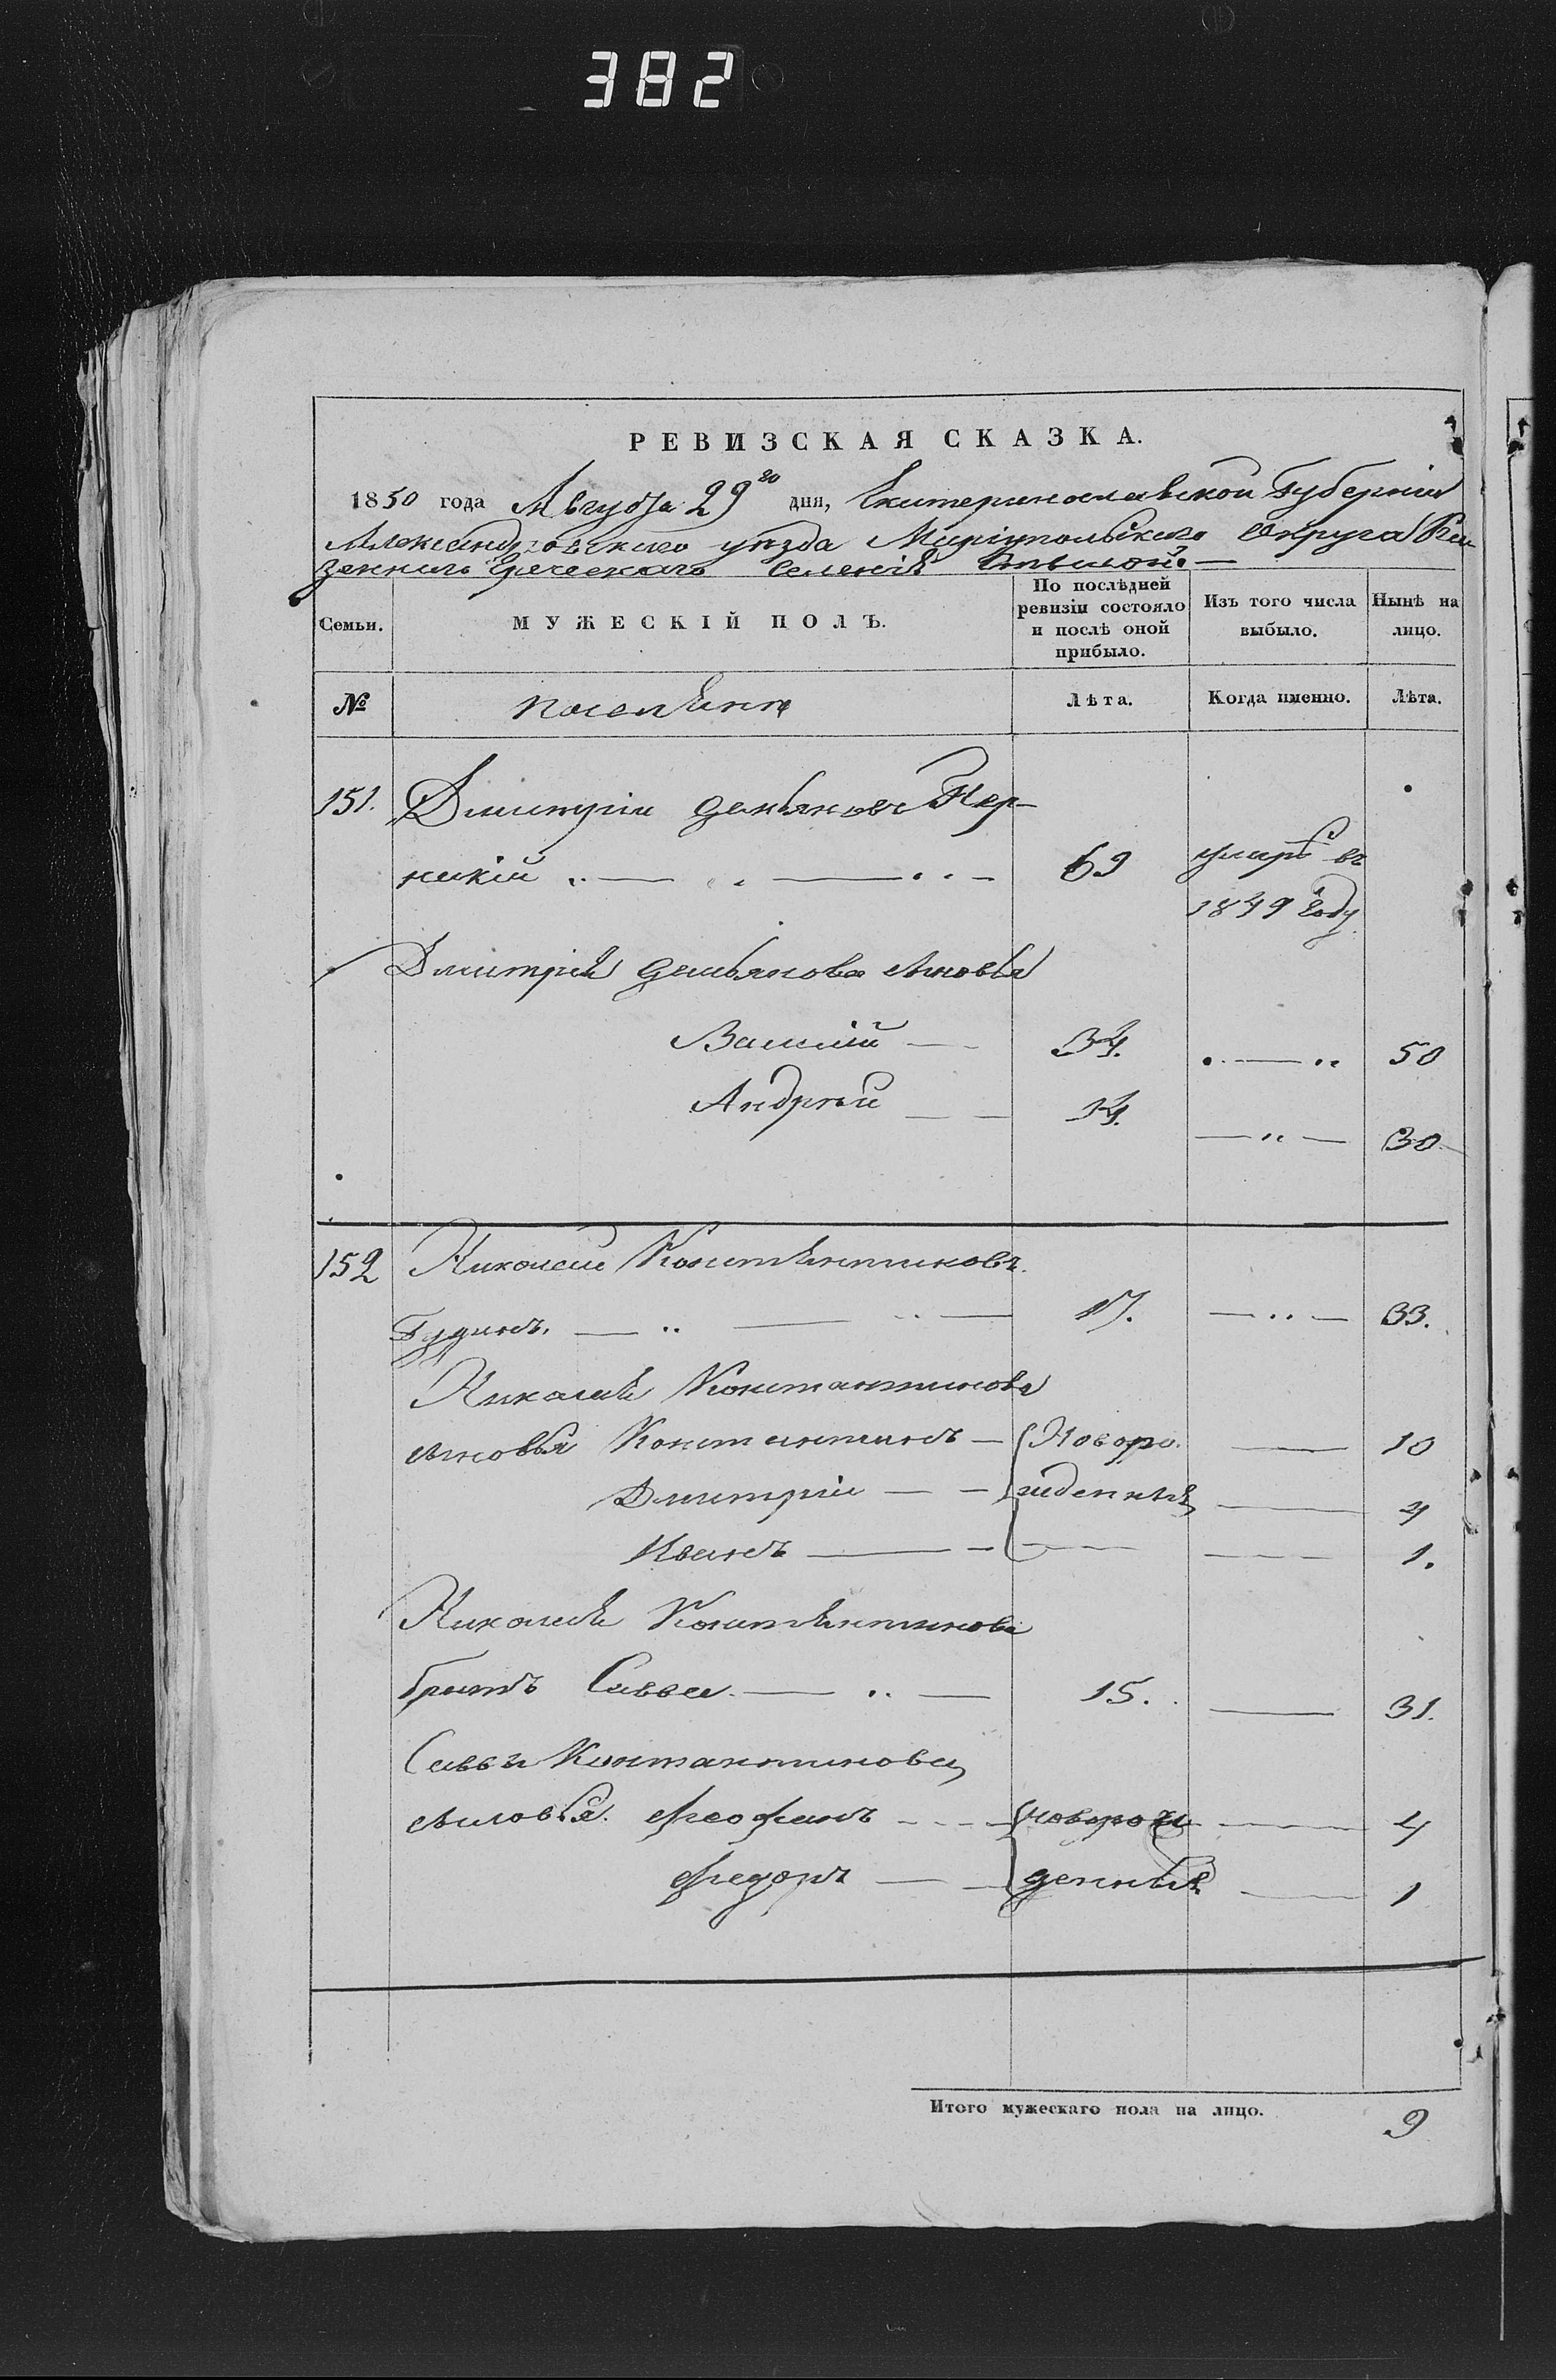 382
РЕВИЗСКАЯ СКАЗКА.
1850 года Августа 29го дня, Екатеринославской Губерніи
Александровскаго уѣзда Маріупольскаго Округа Ка
зеннаго Греческаго Селенія Стылой.
Семьи. МУЖЕСКІЙ ПОЛЪ. По послѣдней ревизіи состояло и послѣ оной прибыло. Изъ того числа выбыло. Нынѣ на лицо.
№ поселяне Лѣта. Когда именно. Лѣта.
151. Дмитрій Демьяновъ
69 умеръ въ
1849 году
Дмитрія Демьянова сыновья
Василій 34. 50
Андрей 14. 30
152 Николай Константиновъ
17. 33.
Николая Константинова
сыновья Константинъ Новоро 10
Дмитрій жденныя 4
Иванъ 1.
Николая Константинова
братъ Савва 15. 31.
Саввы Константинова
сыновья Феофанъ новорож 4
Федоръ денныя 1
Итого мужескаго пола на лицо. 9